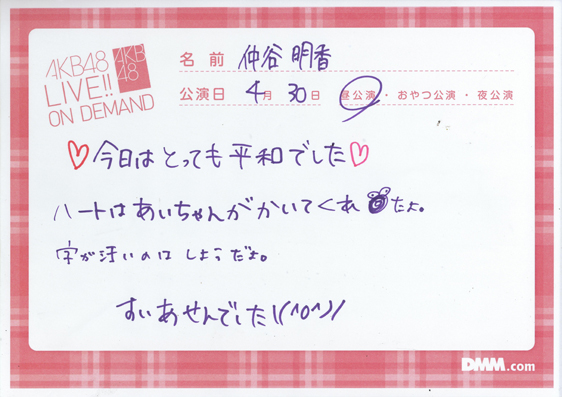 AKB48
LIVE!!
ON DEMAND
AKB
48
名前 仲谷明香
公演日 4月30日 昼公演・おやつ公演・夜公演
♡今日はとっても平和でした♡
ハートはあいちゃんがかいてくれたよ。
字が汚いのはしようだよ。
すいあせんでした\(^o^)/
DMM.com